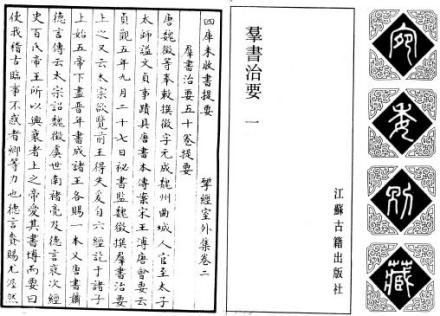 宛
委
別
藏
羣書治要 一
江蘇古籍出版社
四庫未收書提要 揅經室外集卷二
羣書治要五十卷提要
唐魏徵等奉敕撰徵字元成魏州曲城人官至太子
太師謚文貞事蹟具唐書本傳案宋王溥唐會要云
貞觀五年九月二十七日秘書監魏徵撰羣書治要
上之又云太宗欲覽前王得失爰自六經訖于諸子
上始五帝下盡晉年書成諸王各賜一本又唐書蕭
德言傳云太宗詔魏徵虞世南褚亮及德言裒次經
史百氏帝王所以興衰者上之帝愛其書博而要曰
使我稽古臨事不惑者卿等力也德言賚賜尤渥然